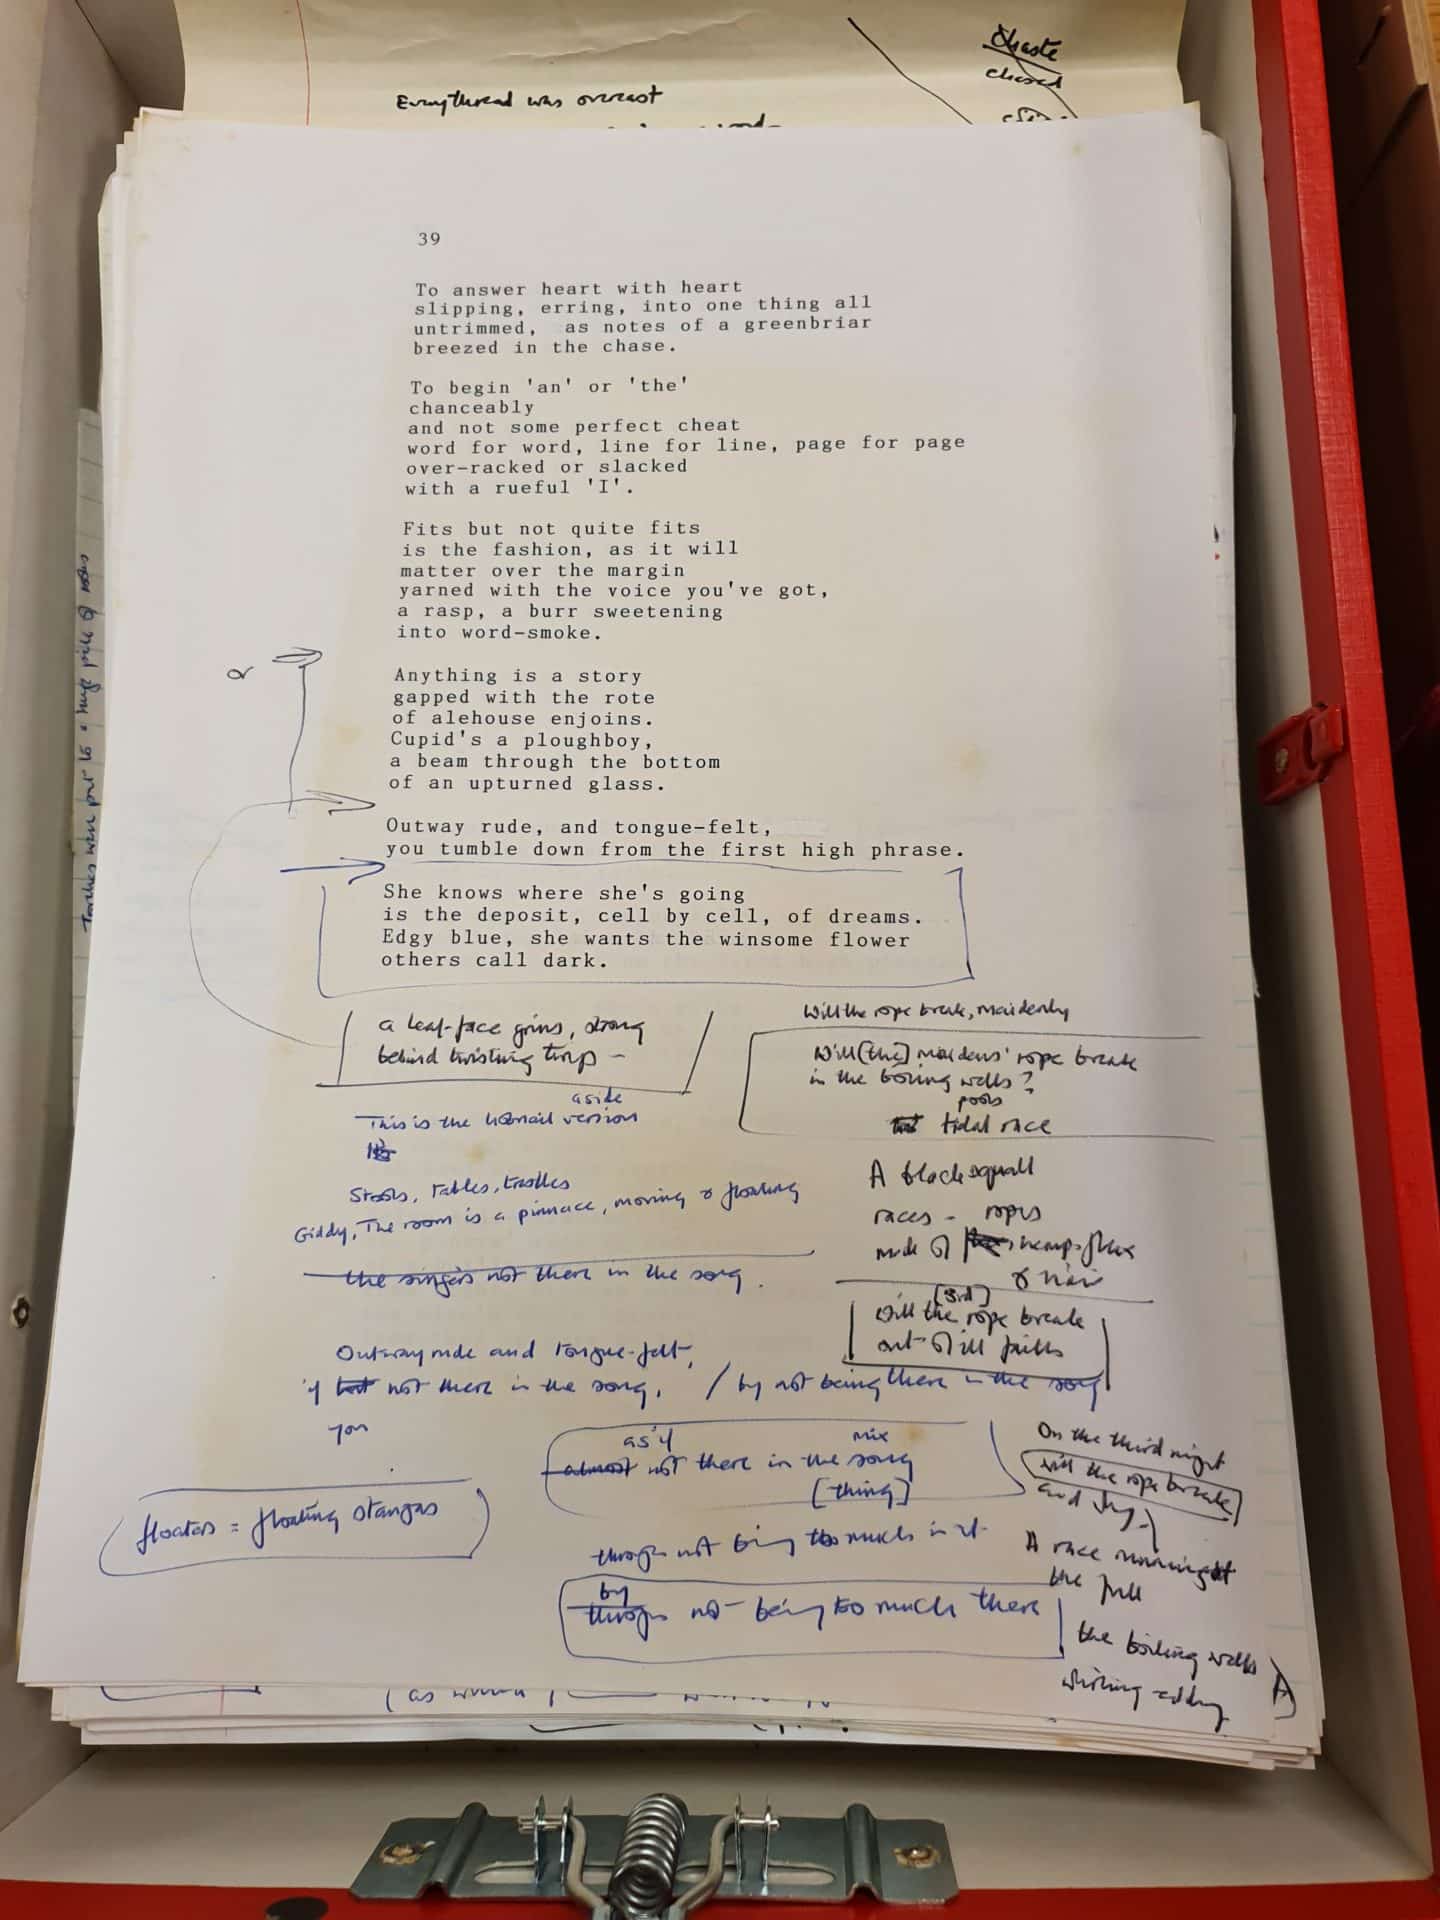 chaste
chased
Every thread was overcast
39
To answer heart with heart
slipping, erring, into one thing all
untrimmed,  as notes of a greenbriar
breezed in the chase.
To begin 'an' or 'the'
chanceably
and not some perfect cheat
word for word, line for line, page for page
over-racked or slacked
with a rueful 'I'.
Fits but not quite fits
is the fashion, as it will
matter over the margin
yarned with the voice you've got,
a rasp, a burr sweetening
into word-smoke.
or
Anything is a story
gapped with the rote
of alehouse enjoins.
Cupid's a ploughboy,
a beam through the bottom
of an upturned glass.
Outway rude, and tongue-felt,
you tumble down from the first high phrase.
She knows where she's going
is the deposit, cell by cell, of dreams.
Edgy blue, she wants the winsome flower
others call dark.
a leaf-face grins, strong
behind twisting
aside
This is the hobnail version
Stools, Tables, trestles
Giddy, The room is a pinnace, moving & floating
the singers not there in the song.
Outway rude and tongue-felt,
if not there in the song, / by not being there in the song
you
as if mix
almost not there in the song
[thing]
floaters = floating stanzas
through not being too much in it
by
through not being too much there
Will the rope break, maidenly
Will [the] maidens' rope break
in the boiling wells?
pools
tidal race
A black squall
races - ropes
made of hemp, flax
& hair
[3rd]
Will the rope break
out of ill faith
On the third night
will the rope break
and
A race running at
the full
the boiling wells
whirling eddy
A
Torches were put to a huge pile of
(as